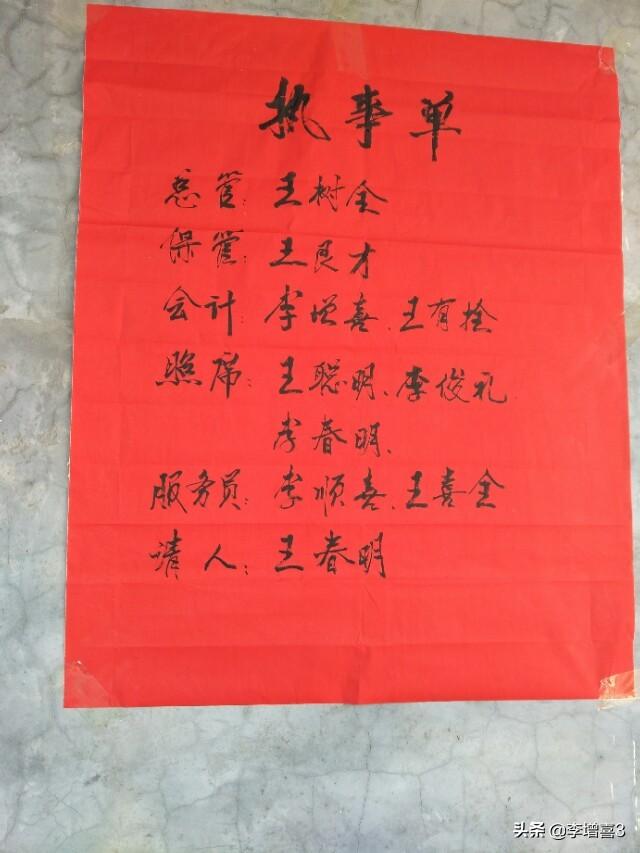 执事单
总管：王树全
保管：王良才
会计：李增喜、王有拴
照席：王聪明、李俊礼
李春明、
服务员：李顺喜、王喜全
请人：王春明
头条 @李增喜3